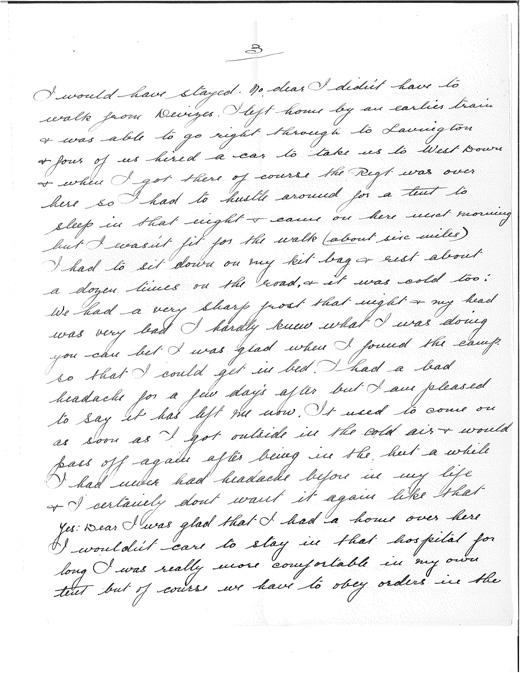 3
I would have stayed. No, dear I did'nt have to
walk from Devizes. I left home by an earlier train
& was able to go right through to Lavington
& four of us hired a car to take us to West Down
& when I got there of course the Regt was over
here so I had to hustle around for a tent to
sleep in that night & came on here next morning
but I was'nt fit for the walk (about six miles)
I had to sit down on my kit bag & rest about
a dozen times on the road, & it was cold too:
We had a very sharp frost that night & my head
was very bad I hardly knew what I was doing
you can bet I was glad when I found the camp
so that I could get in bed. I had a bad
headache for a few days after but I am pleased
to say it has left me now. It used to come on
as soon as I got outside in the cold air & would
pass off again after being in the hut a while
I had never had headache before in my life
& I certainly dont want it again like that
Yes: Dear I was glad that I had a home over here
I would'nt care to stay in that hospital for
long I was really more comfortable in my own
tent but of course we have to obey orders in the